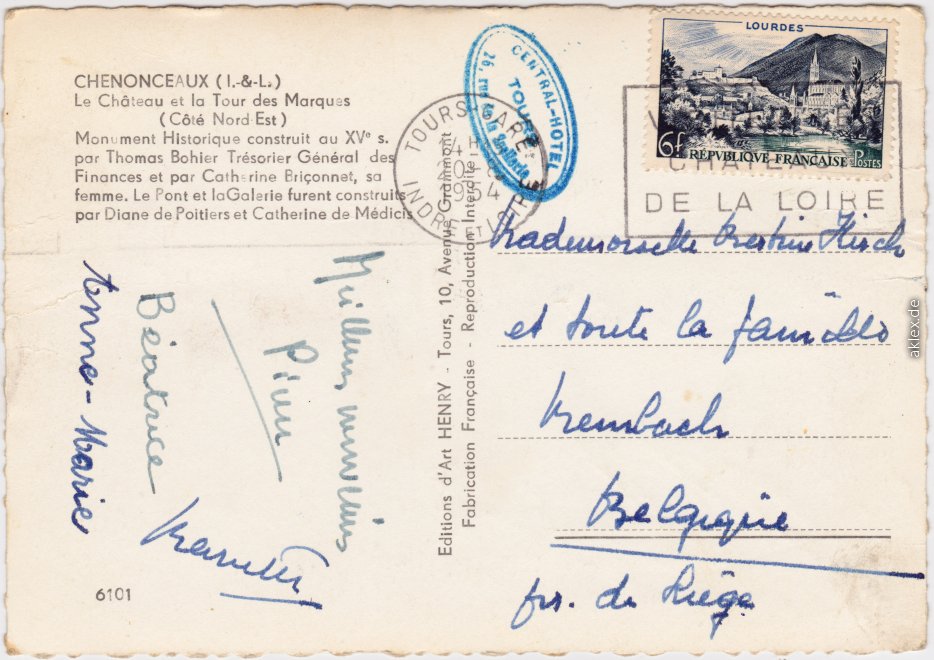 CHENONCEAUX (I.-&-L.)
Le Château et la Tour des Marques
(Côté Nord Est)
Monument Historique construit au XVe s.
par Thomas Bohier Trésorier Général des
Finances et par Catherine Briçonnet, sa
femme. Le Pont et laGalerie furent construits
par Diane de Poitiers et Catherine de Médicis
Anne-Marie
Béatrice
Meilleurs
6101
Editions d'Art HENRY - Tours, 10, Avenue Grammont
Fabrication Française - Reproduction Interdite
CENTRAL-HOTEL
TOURS
TOURS-GARE
1954
INDRE ET LOIRE
LOURDES
6f
RÉPUBLIQUE FRANÇAISE
POSTES
DE LA LOIRE
Mademoiselle Hirsch
et toute la famille
Belgique
de Liège
aklex.de